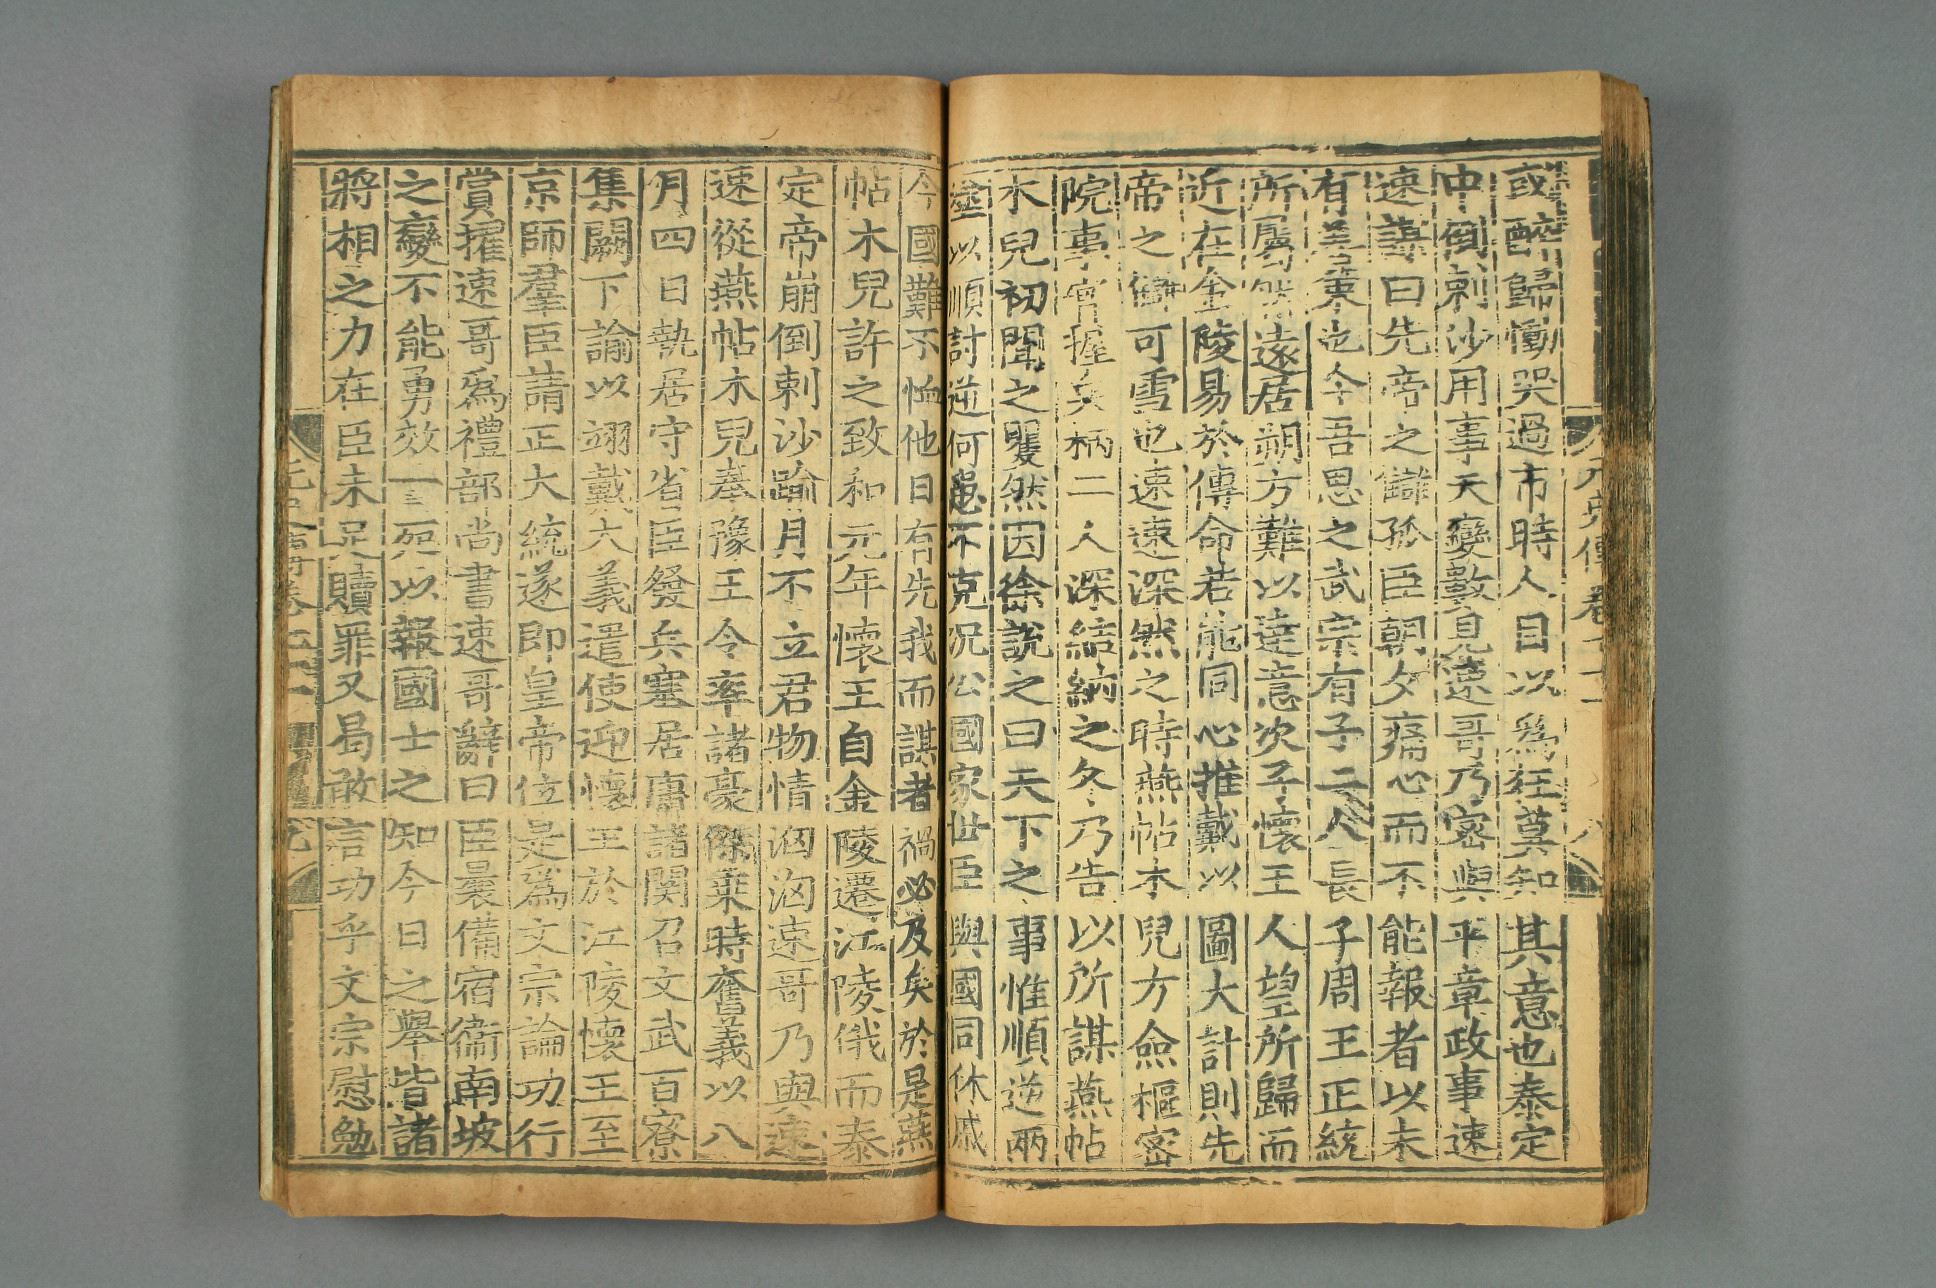 或醉歸慟哭過市時人目以爲狂莫知其意也泰定
中倒剌沙用事天變數見速哥乃密與平章政事速
速謀曰先帝之讎孤臣朝夕痛心而不能報者以未
有善策也今吾思之武宗有子二人長子周王正統
所屬然遠居朔方難以達意次子懷王人望所歸而
近在金陵易於傳命若能同心推戴以圖大計則先
帝之讎可雪也速速深然之時燕帖木兒方僉樞密
院事實握兵柄二人深結納之久乃告以所謀燕帖
木兒初聞之矍然因徐說之曰天下之事惟順逆兩
塗以順討逆何患不克况公國家世臣與國同休戚
今國難不恤他日有先我而謀者禍必及矣於是燕
帖木兒許之致和元年懷王自金陵遷江陵俄而泰
定帝崩倒剌沙踰月不立君物情洶洶速哥乃與速
速從燕帖木兒奉豫王令率諸豪傑乘時奮義以八
月四日執居守省臣發兵塞居庸諸関召文武百寮
集闕下諭以翊戴大義遣使迎懷王於江陵懷王至
京師羣臣請正大統遂即皇帝位是爲文宗論功行
賞擢速哥爲禮部尚書速哥辭曰臣曩備宿衞南坡
之變不能勇效一死以報國士之知今日之舉皆諸
將相之力在臣未足贖罪又曷敢言功乎文宗慰勉